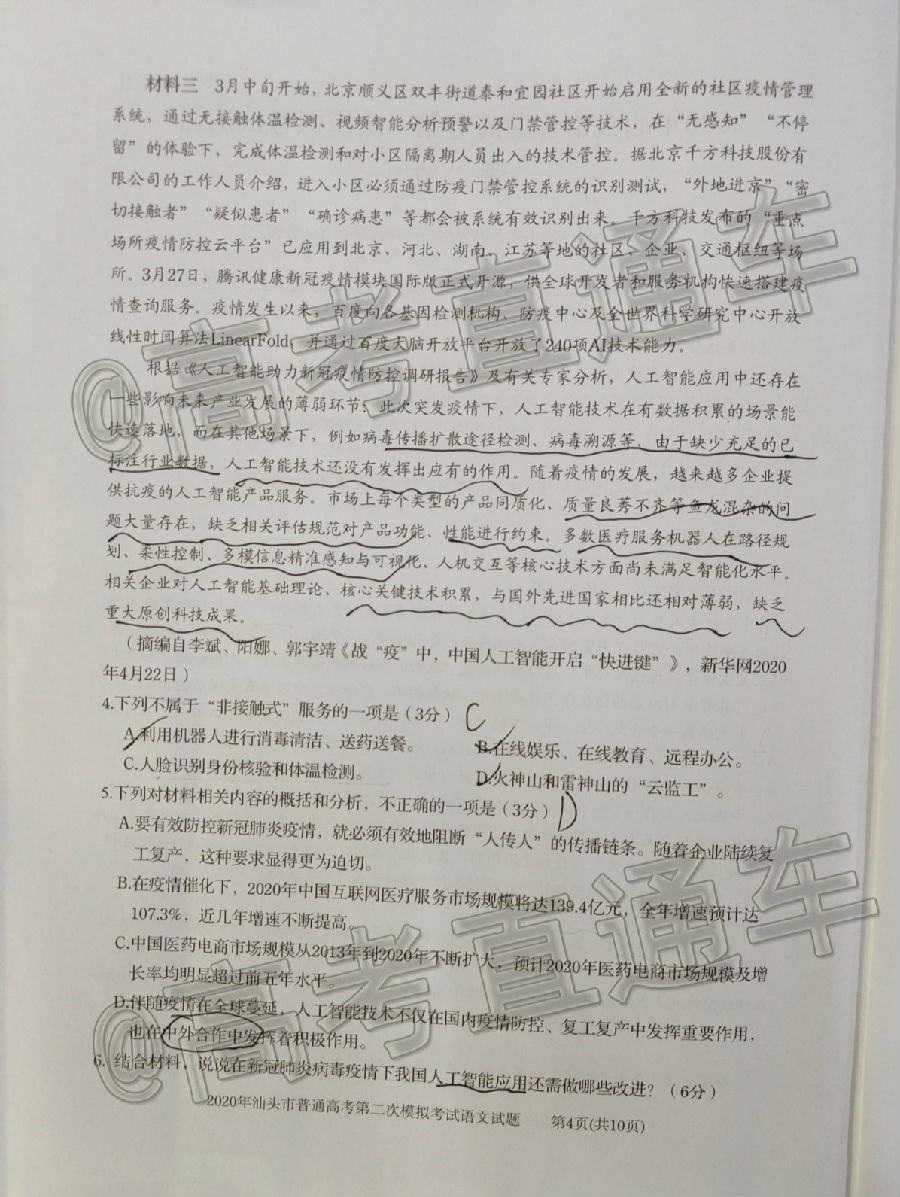 材料三 3月中旬开始，北京顺义区双丰街道泰和宜园社区开始启用全新的社区疫情管理
系统，通过无接触体温检测、视频智能分析预警以及门禁管控等技术，在“无感知”“不停
留”的体验下，完成体温检测和对小区隔离期人员出入的技术管控。据北京千方科技股份有
限公司的工作人员介绍，进入小区必须通过防疫门禁管控系统的识别测试，“外地进京”“密
切接触者”“疑似患者”“确诊病患”等都会被系统有效识别出来。千方科技发布的“重点
场所疫情防控云平台”已应用到北京、河北、湖南、江苏等地的社区、企业、交通枢纽等场
所。3月27日，腾讯健康新冠疫情模块国际版正式开源，供全球开发者和服务机构快速搭建疫
情查询服务。疫情发生以来，百度向各基因检测机构、防疫中心及全世界科学研究中心开放
线性时间算法LinearFold，并通过百度大脑开放平台开放了240项AI技术能力。
根据《人工智能助力新冠疫情防控调研报告》及有关专家分析，人工智能应用中还存在
一些影响未来产业发展的薄弱环节：此次突发疫情下，人工智能技术在有数据积累的场景能
快速落地，而在其他场景下，例如病毒传播扩散途径检测、病毒溯源等，由于缺少充足的已
标注行业数据，人工智能技术还没有发挥出应有的作用。随着疫情的发展，越来越多企业提
供抗疫的人工智能产品服务。市场上每个类型的产品同质化、质量良莠不齐等鱼龙混杂的问
题大量存在，缺乏相关评估规范对产品功能、性能进行约束。多数医疗服务机器人在路径规
划、柔性控制、多模信息精准感知与可视化、人机交互等核心技术方面尚未满足智能化水平。
相关企业对人工智能基础理论、核心关键技术积累，与国外先进国家相比还相对薄弱，缺乏
重大原创科技成果。
（摘编自李斌、阳娜、郭宇靖《战“疫”中，中国人工智能开启“快进键”》，新华网2020
年4月22日）
4.下列不属于“非接触式”服务的一项是（3分） C
A.利用机器人进行消毒清洁、送药送餐。 B.在线娱乐、在线教育、远程办公。
C.人脸识别身份核验和体温检测。 D.火神山和雷神山的“云监工”。
5.下列对材料相关内容的概括和分析，不正确的一项是（3分） D
A.要有效防控新冠肺炎疫情，就必须有效地阻断“人传人”的传播链条。随着企业陆续复
工复产，这种要求显得更为迫切。
B.在疫情催化下，2020年中国互联网医疗服务市场规模将达139.4亿元，全年增速预计达
107.3%，近几年增速不断提高。
C.中国医药电商市场规模从2013年到2020年不断扩大，预计2020年医药电商市场规模及增
长率均明显超过前五年水平。
D.伴随疫情在全球蔓延，人工智能技术不仅在国内疫情防控、复工复产中发挥重要作用，
也在中外合作中发挥着积极作用。
6. 结合材料，说说在新冠肺炎病毒疫情下我国人工智能应用还需做哪些改进？（6分）
2020年汕头市普通高考第二次模拟考试语文试题 第4页(共10页)
@高考直通车
@高考直通车